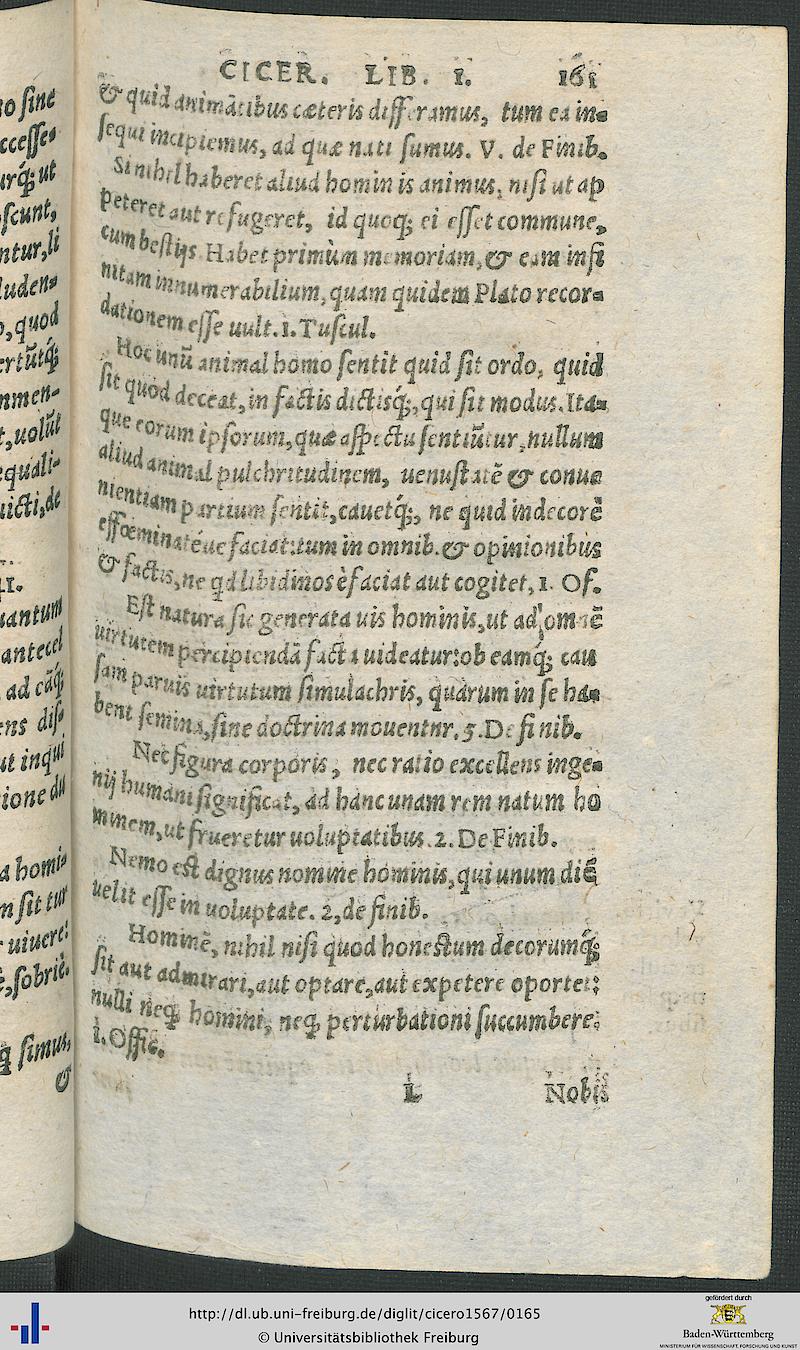 CICER. LIB. I. 161
& quid animātibus cæteris differamus, tum ea in-
sequi incipiemus, ad quæ nati sumus. V. de Finib.
Si nihil haberet aliud hominis animus, nisi ut ap
peteret aut refugeret, id quoq; ei esset commune,
cum bestijs. Habet primùm memoriam, & eam infi
nitam innumerabilium, quam quidem Plato recor-
dationem esse uult. 1. Tuscul.
Hoc unū animal homo sentit quid sit ordo, quid
sit quod deceat, in factis dictisq́;, qui sit modus. Ita-
que eorum ipsorum, quæ aspectu sentiūtur, nullum
aliud animal pulchritudinem, uenustatē & conue
nientiam partium sentit, cauetq́;, ne quid indecorè
effœminatéue faciat: tum in omnib. & opinionibus
& factis, ne qd libidinosè faciat aut cogitet, 1. Of.
Est natura sic generata uis hominis, ut ad omnē
uirtutem percipiendā facta uideatur: ob eamq́; cau
sam paruis uirtutum simulachris, quarum in se ha-
bent semina, sine doctrina mouentnr. 5. De finib.
Nec figura corporis, nec ratio excellens inge-
nij humani significat, ad hanc unam rem natum ho
minem, ut frueretur uoluptatibus. 2. De Finib.
Nemo est dignus nomine hominis, qui unum diē
uelit esse in uoluptate. 2, de finib.
Hominē, nihil nisi quod honestum decorumq́;
sit aut admirari, aut optare, aut expetere oportet:
nulli neq; homini, neq; perturbationi succumbere.
1. Offic.
L Nobis
o sine
ccesse-
urq́; ut
scunt,
ntur, li
luden-
o, quod
ertūtq́;
nmen-
t, uolūt
equali-
uicti, de
LI.
uantum
antecel
ad cāq́;
ens dis-
ut inqui
tione du
a homi-
m sit tur
r uiuere:
è, sobriè.
q simus,
&
http://dl.ub.uni-freiburg.de/diglit/cicero1567/0165
© Universitätsbibliothek Freiburg
gefördert durch
Baden-Württemberg
MINISTERIUM FÜR WISSENSCHAFT, FORSCHUNG UND KUNST